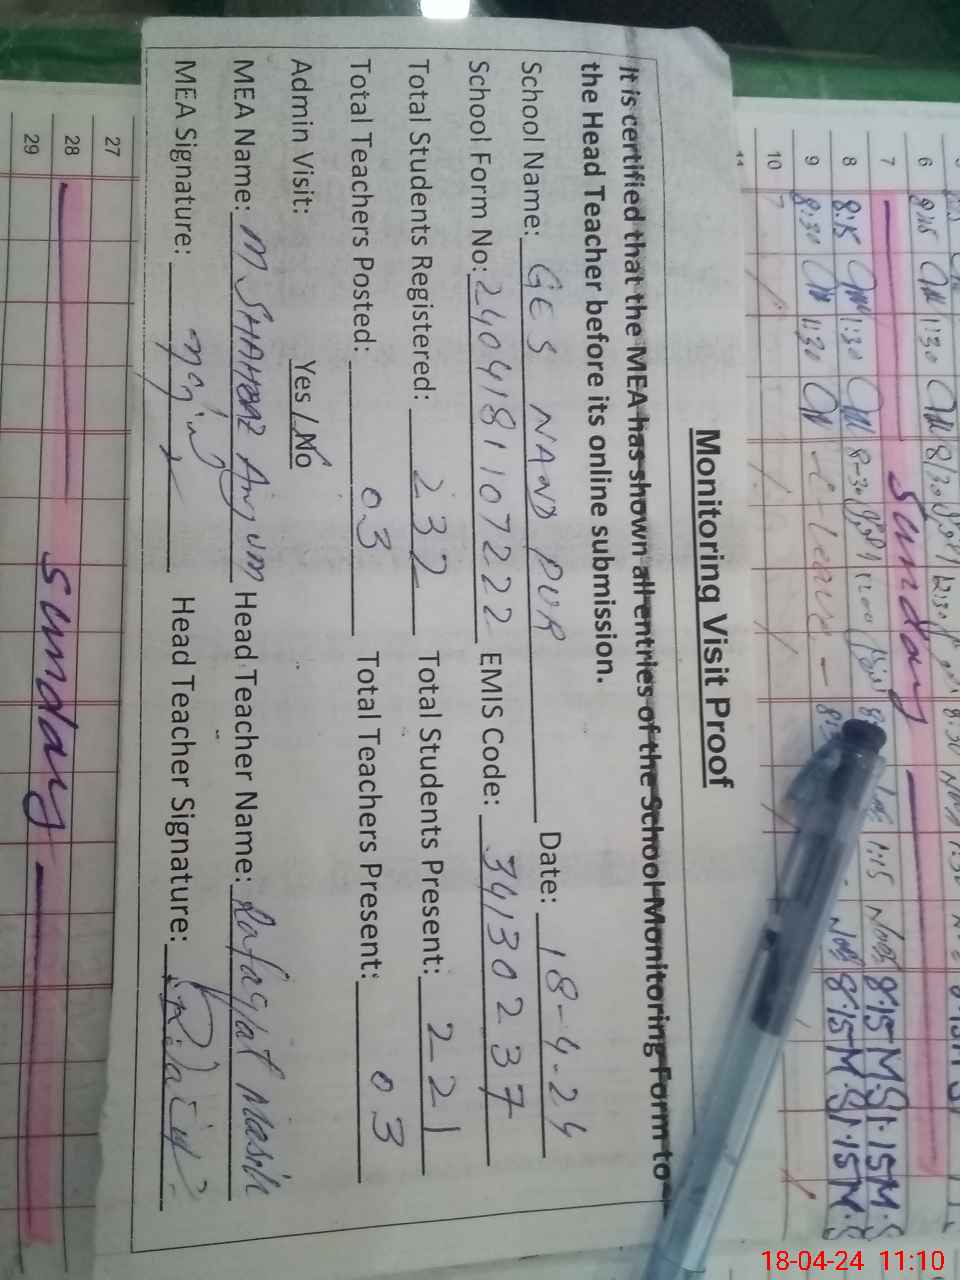 Monitoring Visit Proof
It is certified that the MEA has shown all entries of the School Monitoring Form to
the Head Teacher before its online submission.
School Name: GES NAND PUR Date: 18-4-24
School Form No: 2404181107222 EMIS Code: 34130237
Total Students Registered: 232 Total Students Present: 221
Total Teachers Posted: 03 Total Teachers Present: 03
Admin Visit: Yes / No
MEA Name: M SHAHBAZ Anjum Head Teacher Name: Rafaqat Masih
MEA Signature: Head Teacher Signature:
6 8:15 1:30 8:30
7 Sunday
8 8:15 1:30 8-30 1:15 8:15 M.S 1:15 M.S
9 8:30 1:30 C-Leave 8:15 M.S 1:15 M.S
10
11
27
28 Sunday
29
18-04-24 11:10